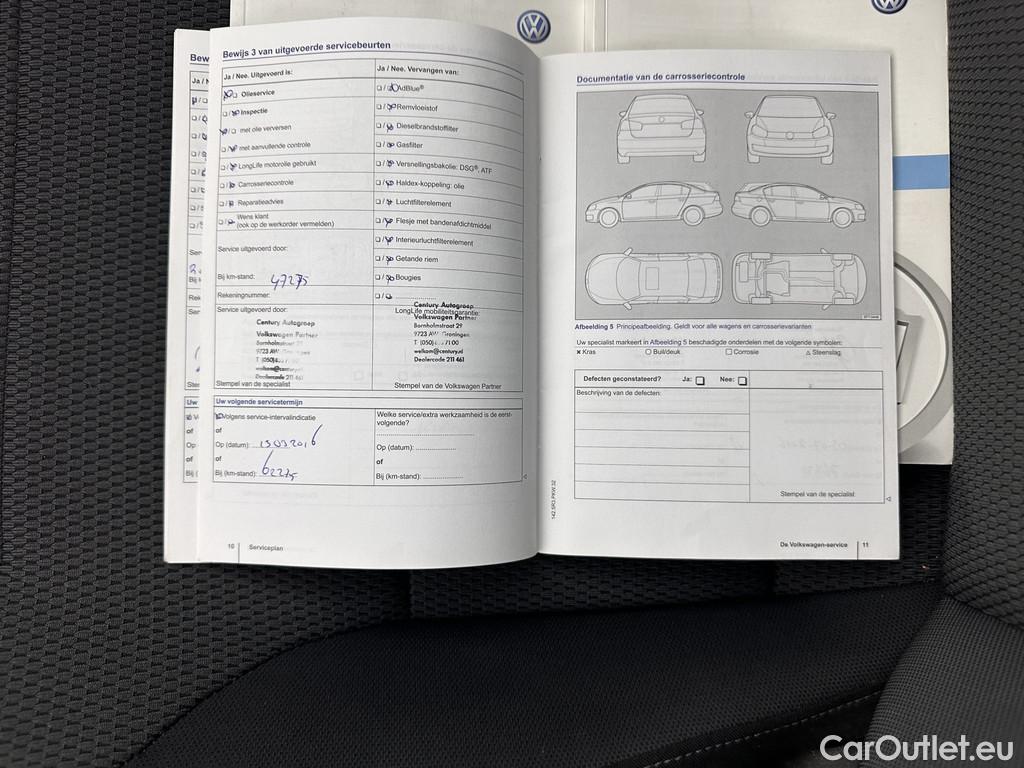 Bewijs 3 van uitgevoerde servicebeurten
Ja / Nee. Uitgevoerd is:
Olieservice
Inspectie
met olie verversen
met aanvullende controle
LongLife motorolie gebruikt
Carrosseriecontrole
Reparatieadvies
Wens klant
(ook op de werkorder vermelden)
Service uitgevoerd door:
Bij km-stand: 47275
Rekeningnummer:
Service uitgevoerd door:
Century Autogroep
Volkswagen Partner
Bornholmstraat 29
9723 AW Groningen
welkom@century.nl
Dealercode 211 461
Stempel van de specialist
Ja / Nee. Vervangen van:
AdBlue®
Remvloeistof
Dieselbrandstoffilter
Gasfilter
Versnellingsbakolie: DSG®, ATF
Haldex-koppeling: olie
Luchtfilterelement
Flesje met bandenafdichtmiddel
Interieurluchtfilterelement
Getande riem
Bougies
LongLife mobiliteitsgarantie:
Century Autogroep
Volkswagen Partner
Bornholmstraat 29
9723 AW Groningen
welkom@century.nl
Dealercode 211 461
Stempel van de Volkswagen Partner
Uw volgende servicetermijn
Volgens service-intervalindicatie
of
Op (datum): 13032016
of
Bij (km-stand): 62275
Welke service/extra werkzaamheid is de eerst-
volgende?
Op (datum):
of
Bij (km-stand):
10 Serviceplan
Documentatie van de carrosseriecontrole
Afbeelding 5 Principeafbeelding. Geldt voor alle wagens en carrosserievarianten
Uw specialist markeert in Afbeelding 5 beschadigde onderdelen met de volgende symbolen:
Kras Buil/deuk Corrosie Steenslag
Defecten geconstateerd? Ja: Nee:
Beschrijving van de defecten:
Stempel van de specialist
142.5R3.PKW.32
De Volkswagen-service 11
CarOutlet.eu